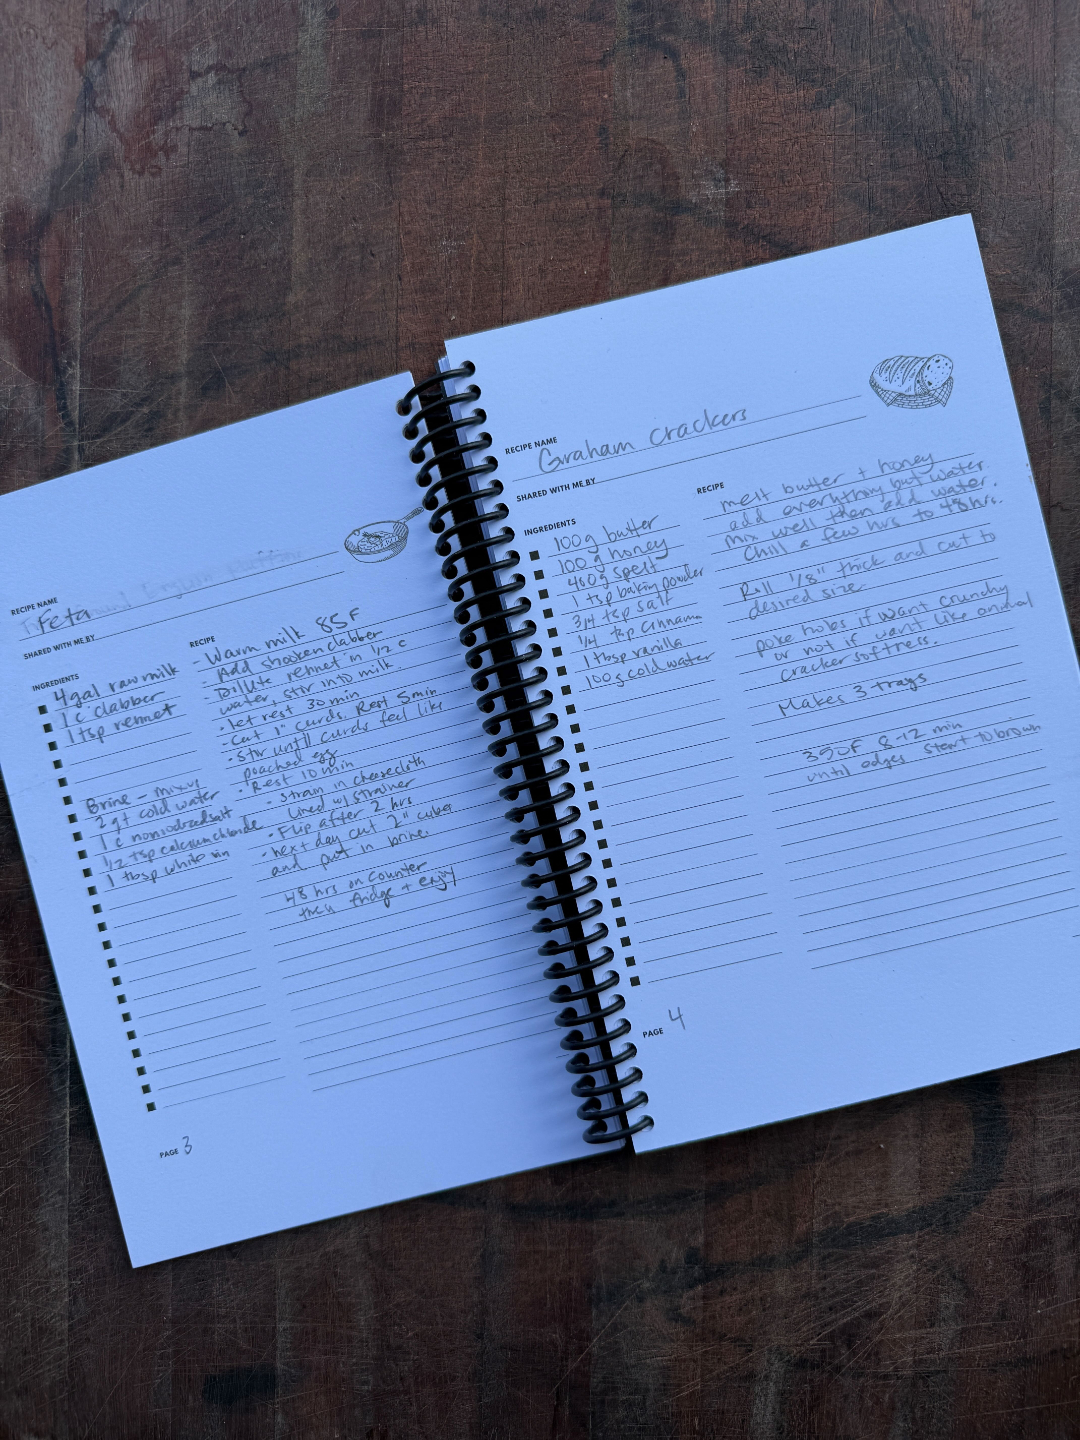 RECIPE NAME
Feta
SHARED WITH ME BY
INGREDIENTS
4 gal raw milk
1 c clabber
1 tsp rennet
Brine - mix of
2 qt cold water
1 c noniodized salt
1/2 tsp calcium chloride
1 tbsp white vin
RECIPE
- Warm milk 85F
Add shooken clabber
Dilute rennet in 1/2 c
water, stir into milk
- let rest 30 min
- Cut 1" curds. Rest 5 min
- Stir until curds feel like
poached egg
- Rest 10 min
- Strain in cheesecloth
lined w/ strainer
- Flip after 2 hrs
- next day cut 2" cubes
and put in brine.
48 hrs on counter
then fridge + enjoy
PAGE 3
RECIPE NAME
Graham Crackers
SHARED WITH ME BY
INGREDIENTS
100g butter
100g honey
400g spelt
1 tsp baking powder
3/4 tsp salt
1/4 tsp cinnamon
1 tbsp vanilla
100g cold water
RECIPE
melt butter + honey
add everything but water.
mix well then add water.
Chill a few hrs to 48 hrs.
Roll 1/8" thick and cut to
desired size
poke holes if want crunchy
or not if want like animal
cracker softness.
Makes 3 trays
350F 8-12 min
until edges start to brown
PAGE 4